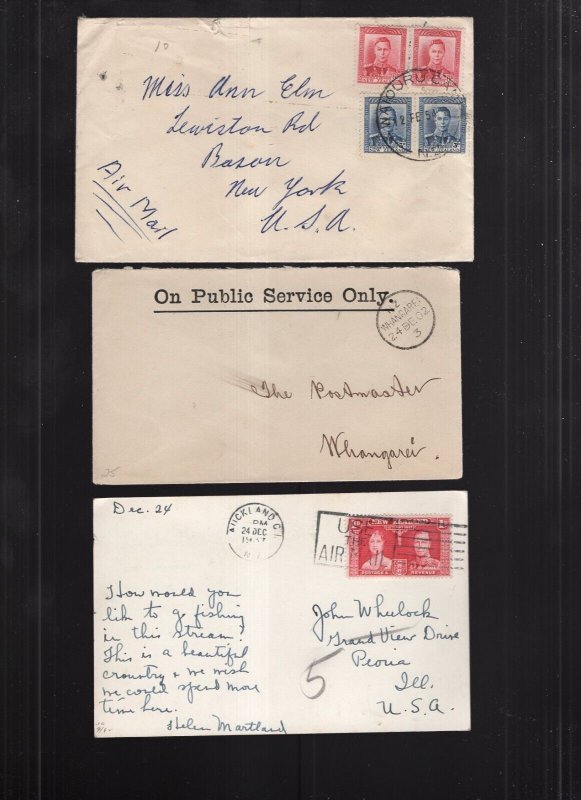 10
Miss Ann Elm
Lewiston Rd
Bason
New York
U.S.A.
Air Mail
WAIOURU CA
12 FE 5
N.Z.
On Public Service Only.
N.Z
WHANGAREI
24 DE 02
3
The Postmaster
Whangarei.
25
Dec. 24
AUCKLAND C.1
PM
24 DEC
193
N.Z.
U
THE
AIR M
NEW ZEALAND
POSTAGE &
REVENUE
How would you
like to go fishing
in this stream?
This is a beautiful
crountry & we wish
we could spend more
time here.
Helen Martland
John Wheelock
Grand View Drive
Peoria
Ill.
U.S.A.
5